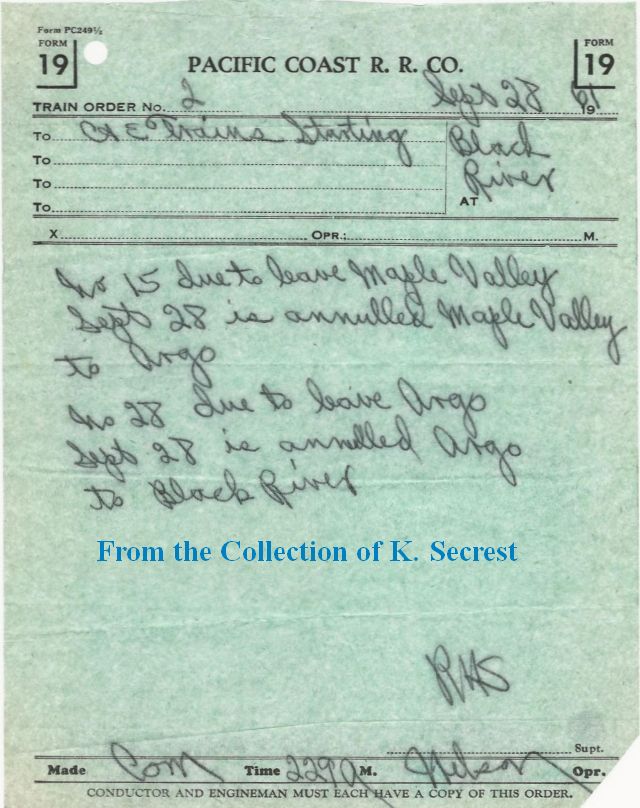 Form PC249½
FORM
19
PACIFIC COAST R. R. CO.
FORM
19
TRAIN ORDER No. 2 Sept 28 1961
To C&E Trains Starting Black
To River
To
To AT
X OPR.; M.
No 15 due to leave Maple Valley
Sept 28 is annulled Maple Valley
to Argo
No 28 due to leave Argo
Sept 28 is annulled Argo
to Black River
From the Collection of K. Secrest
RHS
Supt.
Made Com Time 229 A M. Nelson Opr.
CONDUCTOR AND ENGINEMAN MUST EACH HAVE A COPY OF THIS ORDER.